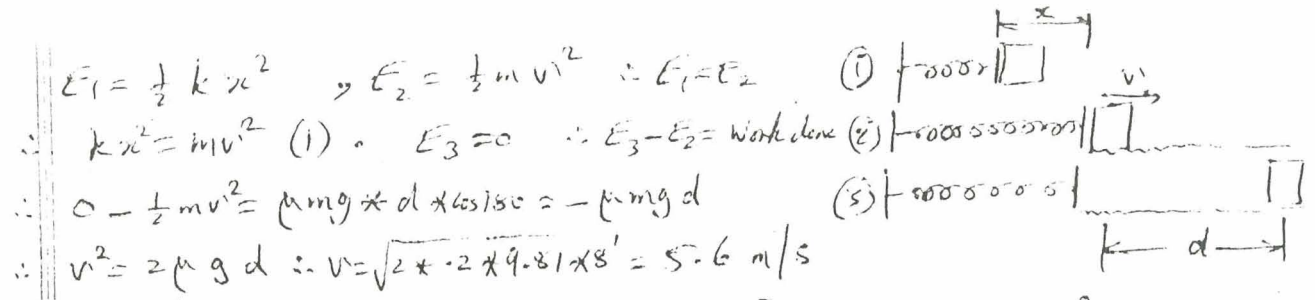 E₁ = ½ k x² , E₂ = ½ m v² ∴ E₁ = E₂ (1) x
∴ kx² = mv² (1) . E₃ = 0 ∴ E₃ - E₂ = work done (2) v
∴ 0 - ½ mv² = μmg * d * cos 180 = - μmg d (3)
∴ v² = 2 μ g d ∴ v = √2 * .2 * 9.81 * 8 = 5.6 m/s d